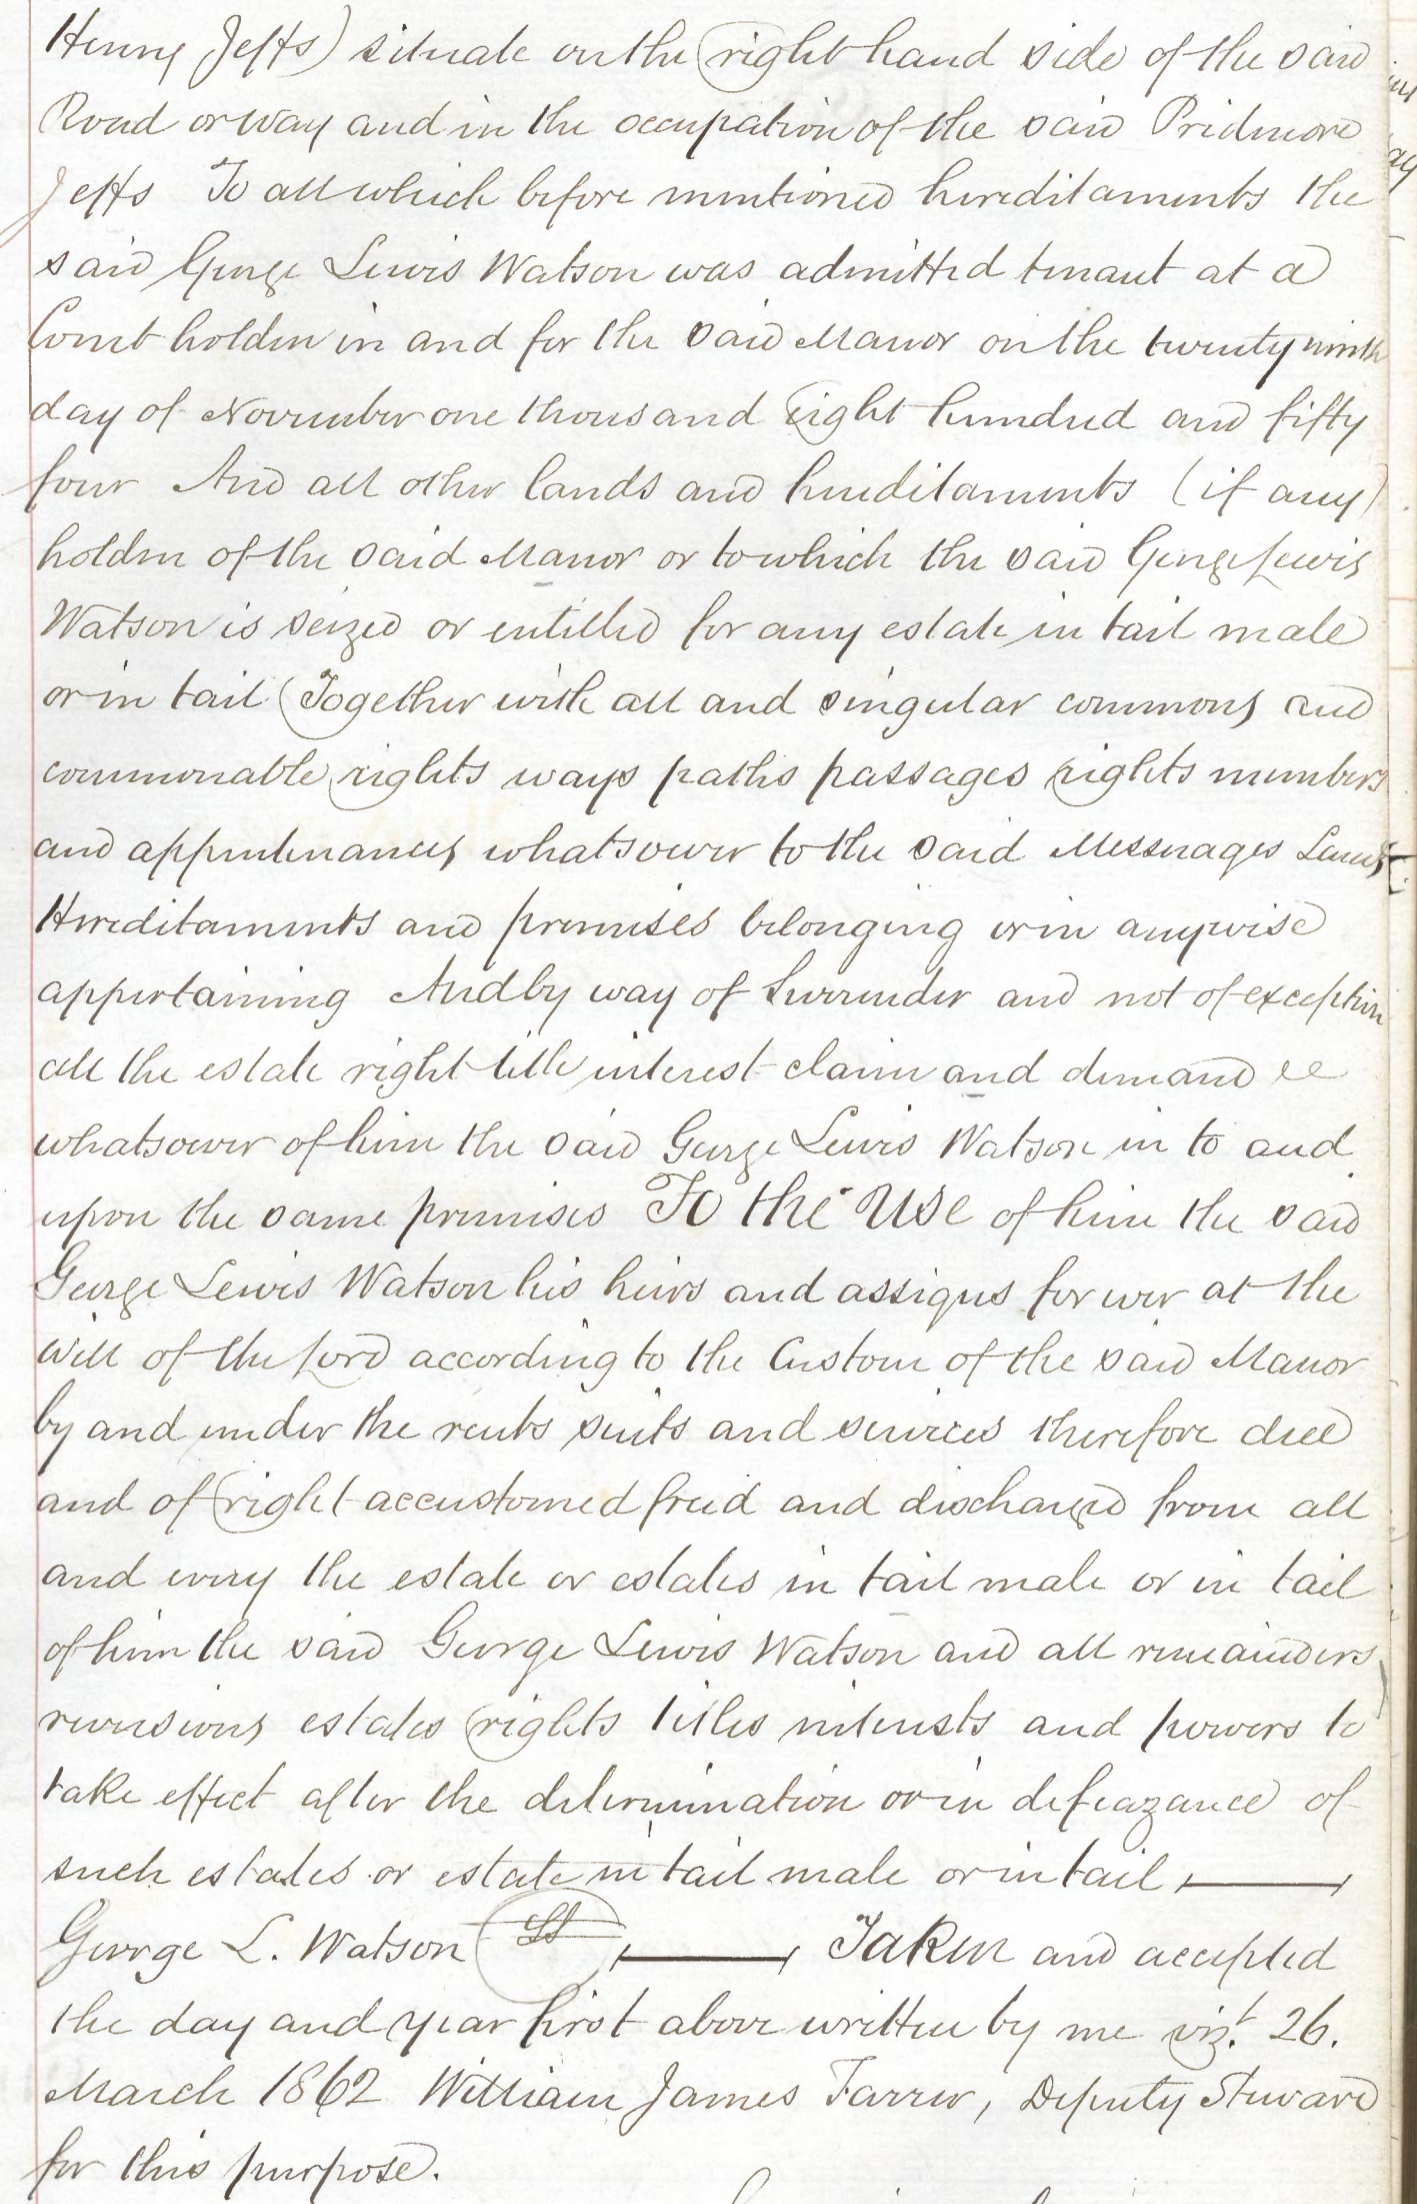 Henry Jeffs) situate on the right hand side of the said
Road or way and in the occupation of the said Pridmore
Jeffs To all which before mentioned hereditaments the
said George Lewis Watson was admitted tenant at a
Court holden in and for the said Manor on the twenty ninth
day of November one thousand eight hundred and fifty
four And all other lands and hereditaments (if any)
holden of the said Manor or to which the said George Lewis
Watson is seized or entitled for any estate in tail male
or in tail Together with all and singular commons and
commonable rights ways paths passages rights members
and appurtenances whatsoever to the said Messuages Lands
Hereditaments and premises belonging or in anywise
appertaining And by way of Surrender and not of exception
all the estate right title interest claim and demand
whatsoever of him the said George Lewis Watson in to and
upon the same premises To the Use of him the said
George Lewis Watson his heirs and assigns for ever at the
Will of the Lord according to the Custom of the said Manor
by and under the rents suits and services therefore due
and of right accustomed freed and discharged from all
and every the estate or estates in tail male or in tail
of him the said George Lewis Watson and all remainders
reversions estates rights titles interests and powers to
take effect after the determination or in defeazance of
such estates or estate in tail male or in tail
George L. Watson LS Taken and accepted
the day and year first above written by me vizt. 26.
March 1862 William James Farrer, Deputy Steward
for this purpose.